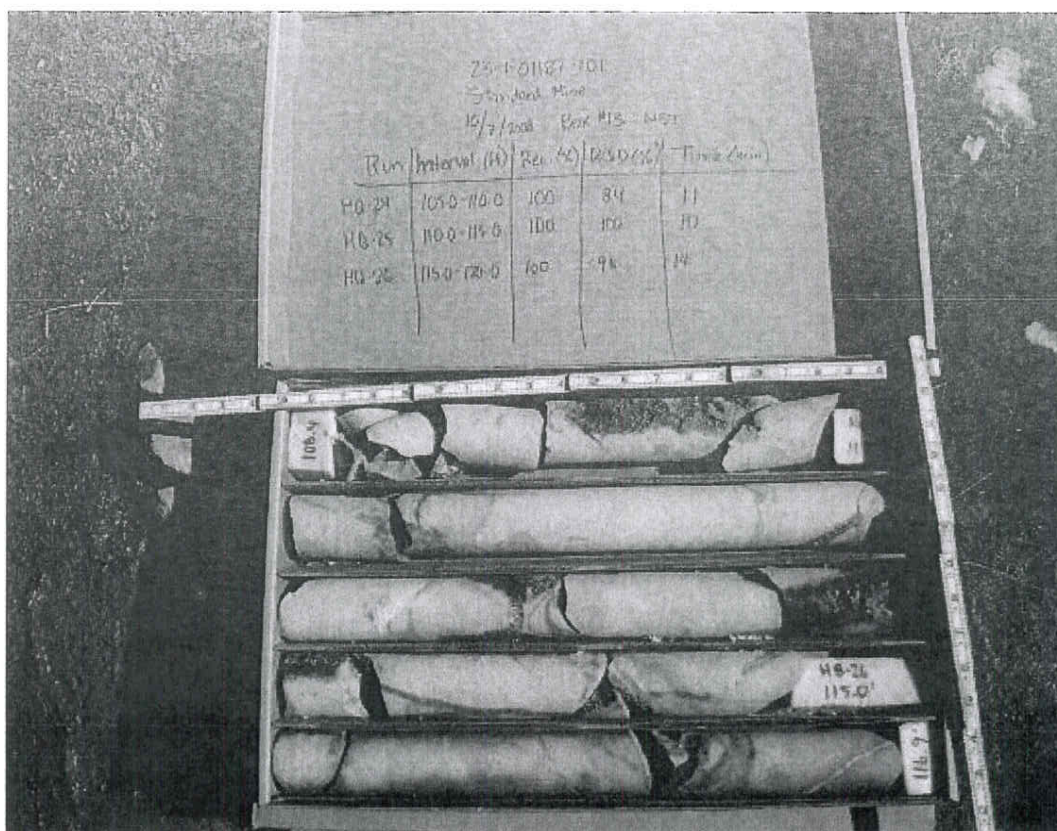 23-1-01187-101
Standard Mine
Box #13
Run Interval (ft) Rec. (%) RQD (%) Time (min)
HQ-24 105.0-110.0 100 84 11
HQ-25 110.0-115.0 100 100 10
HQ-26 115.0-120.0 100 14
108.4
HQ-26
115.0'
116.9